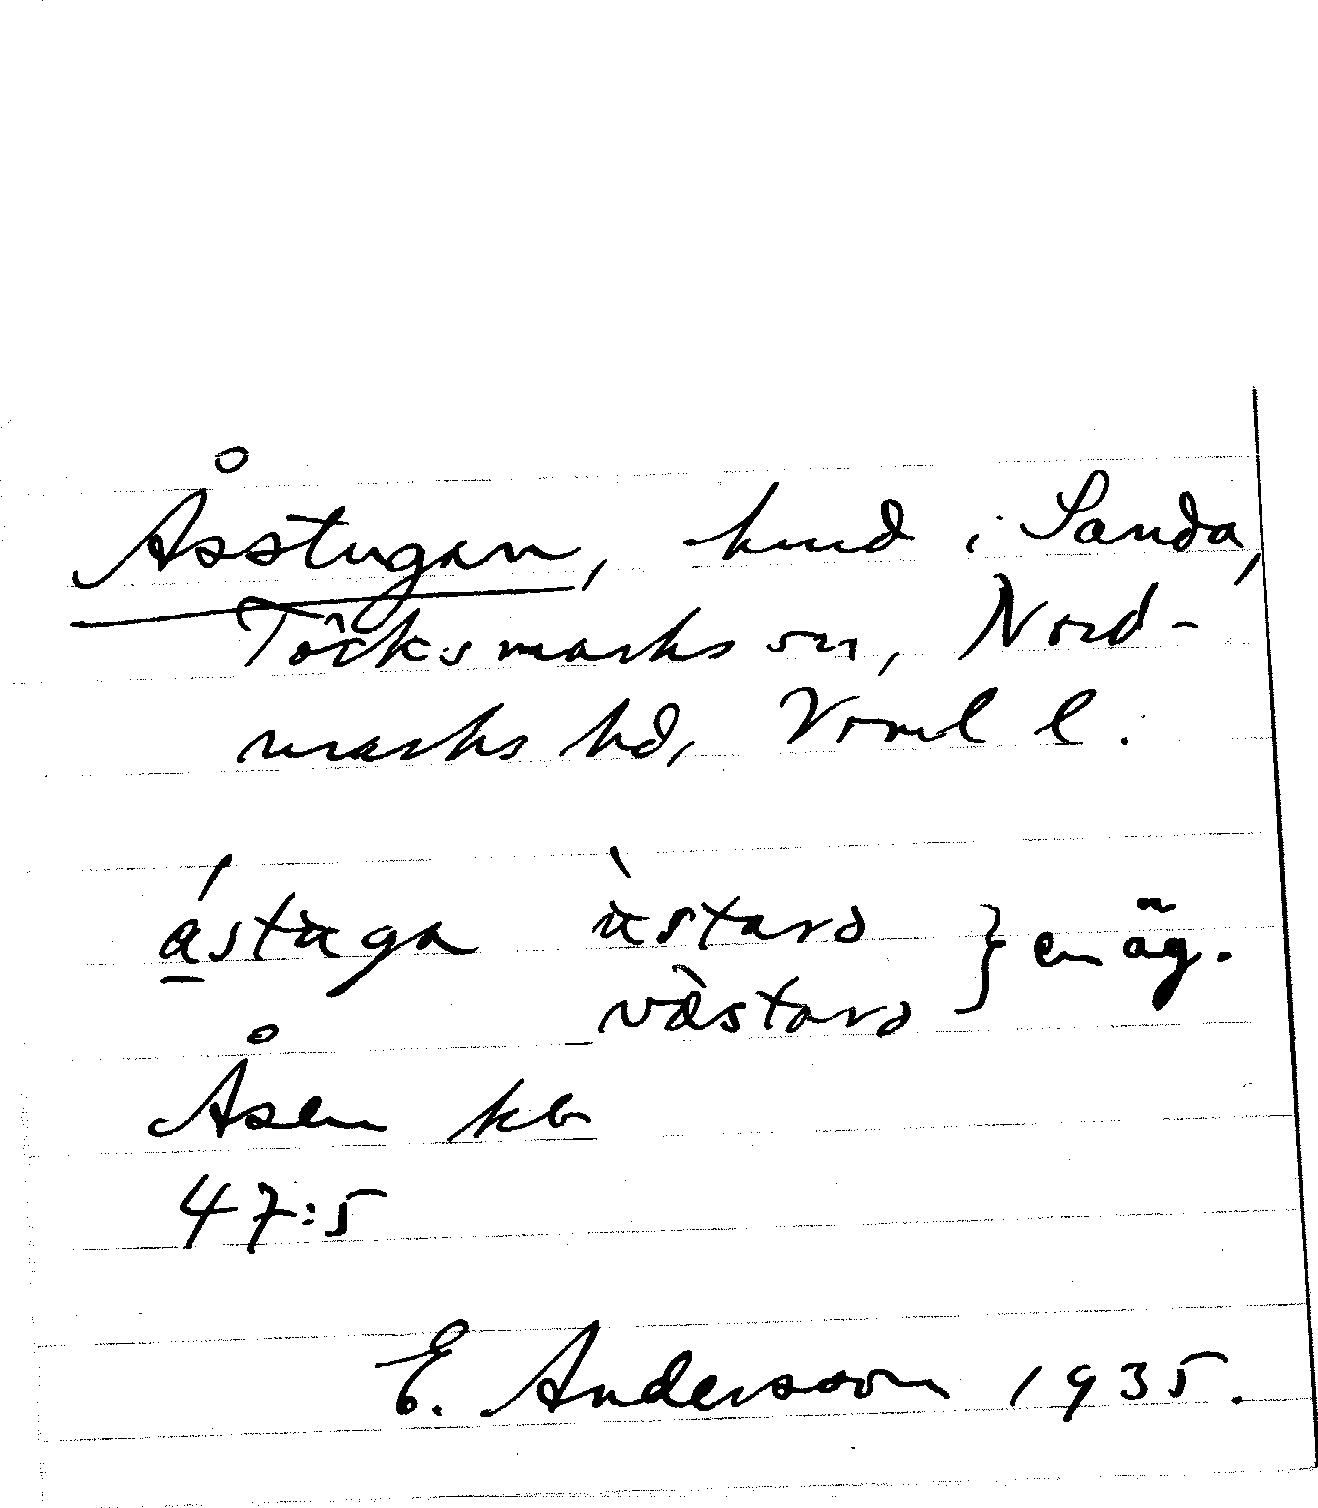 Åsstugan, hmd i Sanda,
Töcksmarks sn, Nord-
marks hd, Vrml l.
ástùga àstard } en äg.
vàstard
Åsen kb
47:5
E. Andersson 1935.